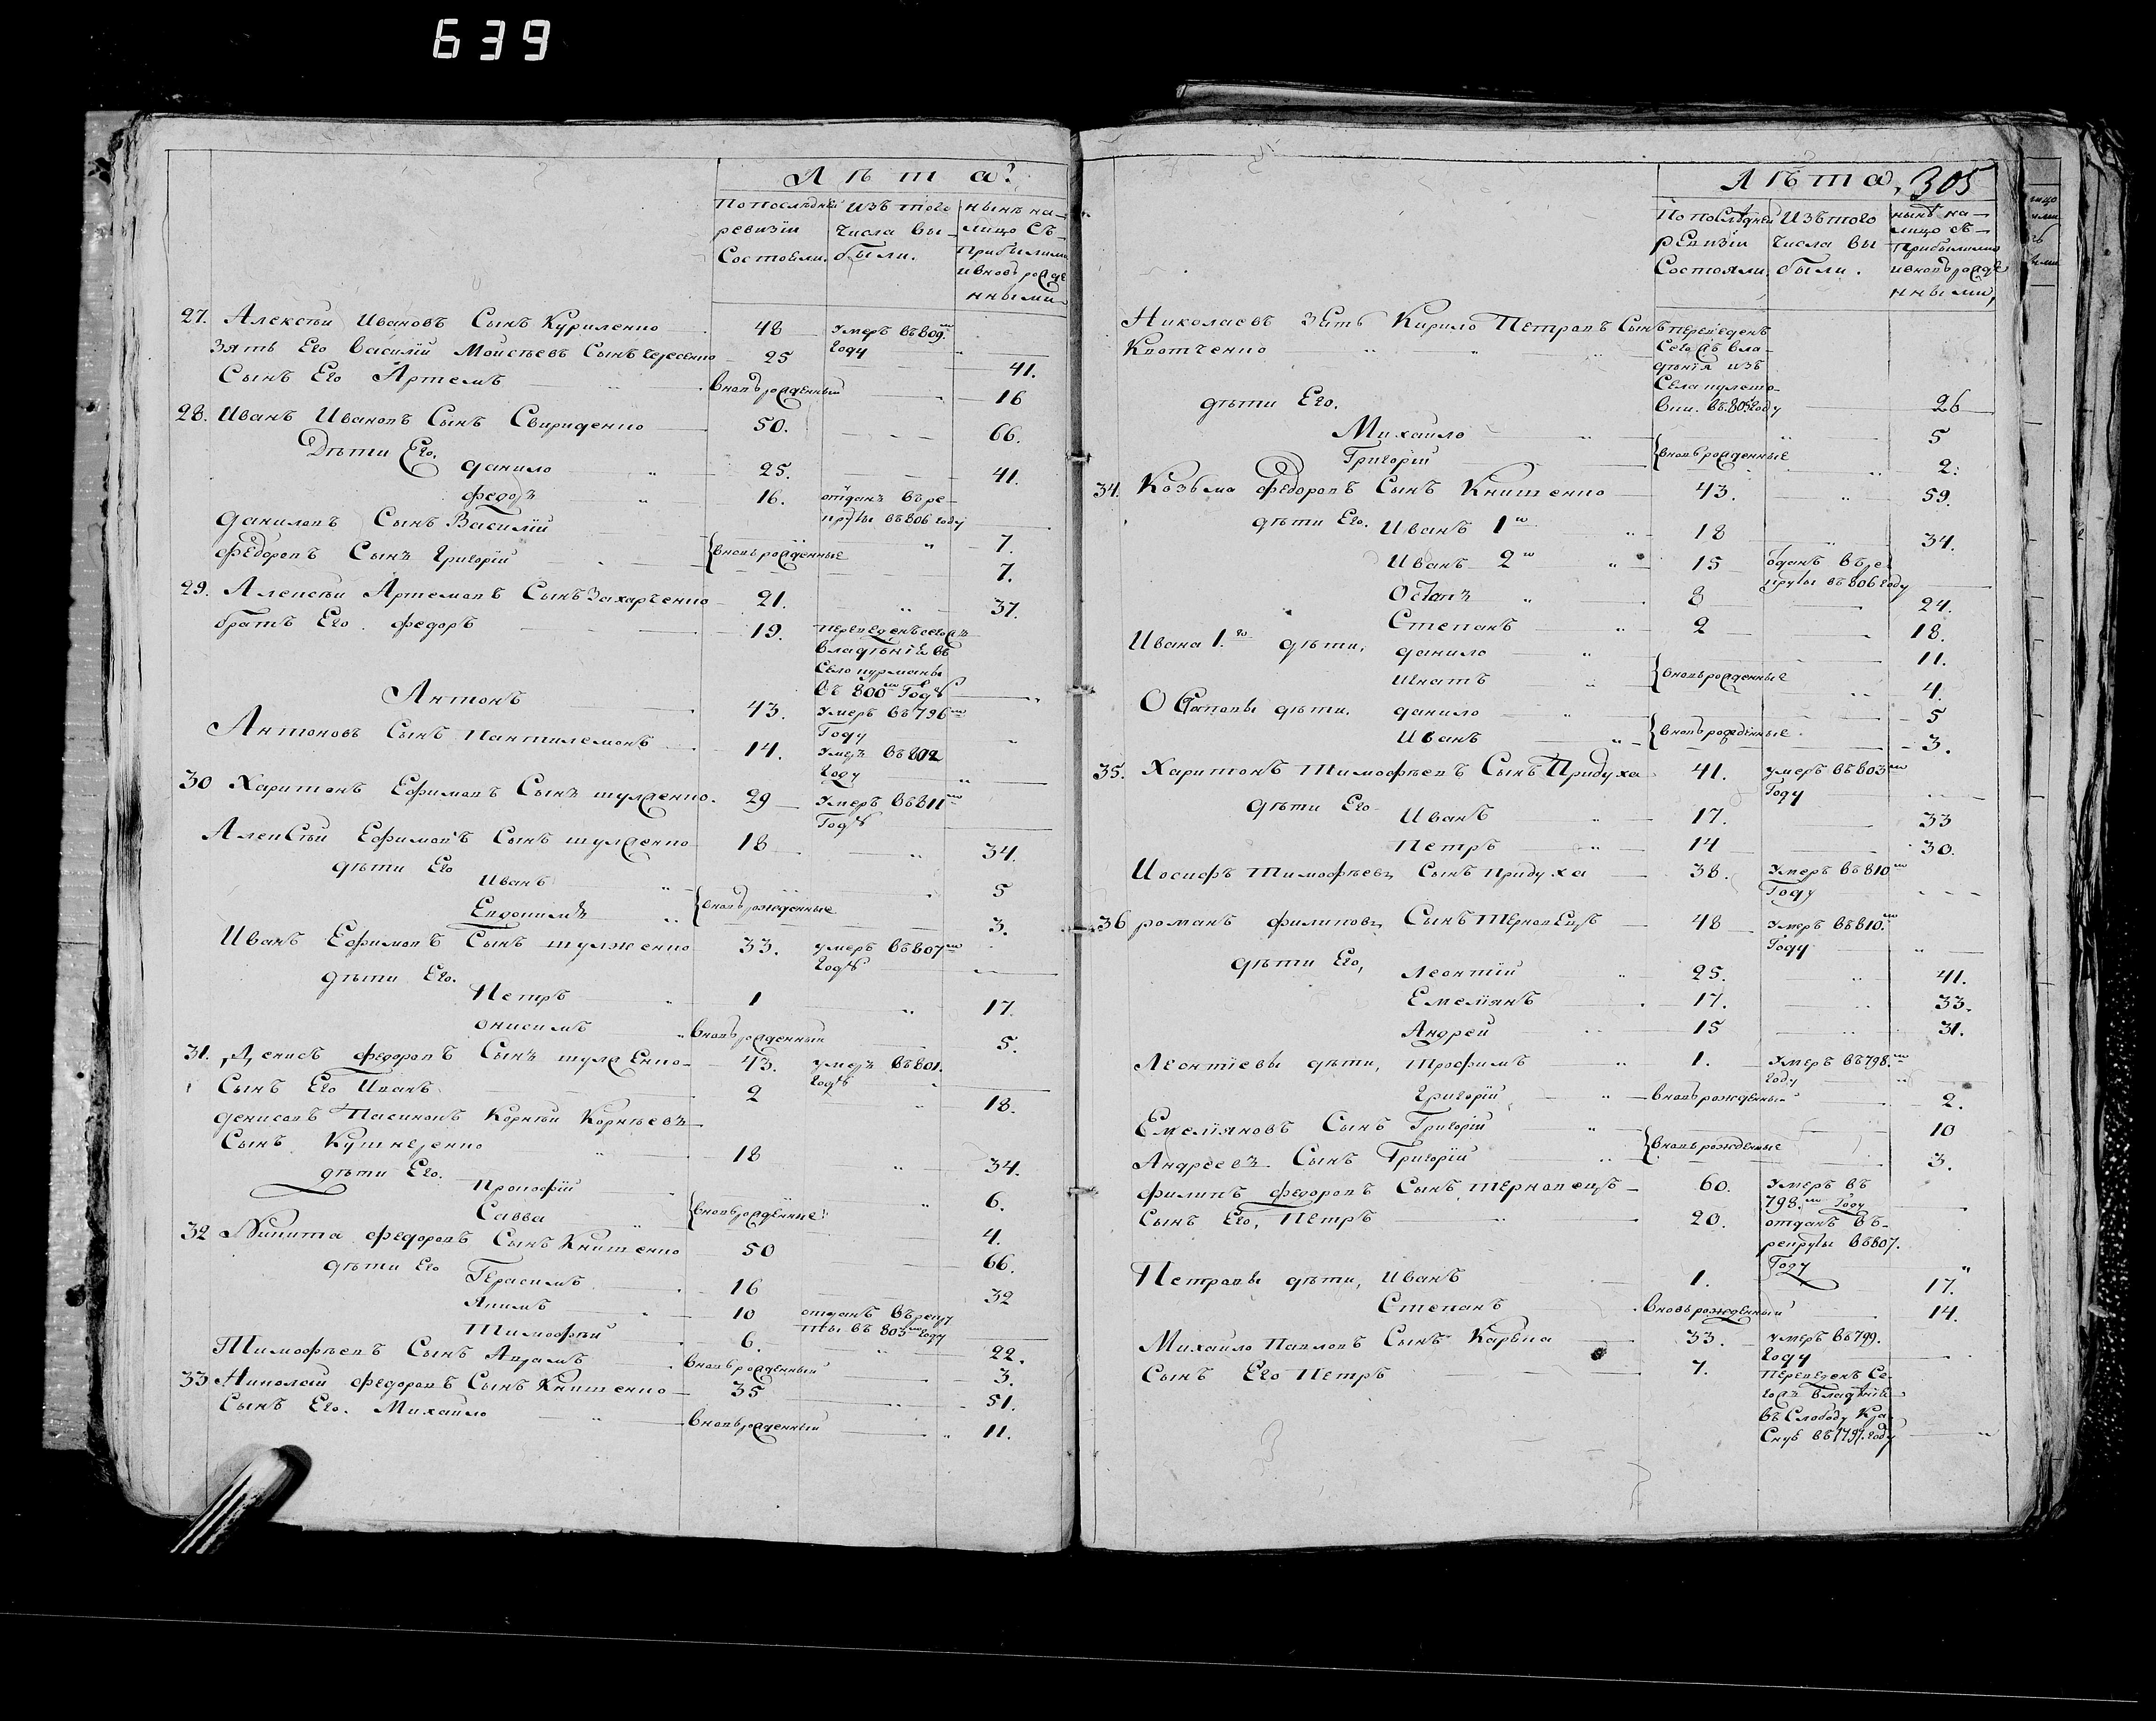 639
Лѣта?
По послѣдней ревизіи Состояли.
изъ того числа вы-были.
нынѣ на-лицо съ-прибылими и вновь рожденными
27. Алексѣй Ивановъ Сынъ Куриленко 48 умеръ въ 809мъ году
Зять Его Василій Моисѣевъ Сынъ 25 41.
Сынъ Его Артемъ вновь рожденный 16
28. Иванъ Ивановъ Сынъ Свириденко 50. 66.
Дѣти Его. Данило 25. 41.
Федоръ 16. отданъ въ рекруты въ 806 году
Даниловъ Сынъ Василій 7.
Федоровъ Сынъ Григорій {вновь рожденные 7.
29. Алексѣй Артемовъ Сынъ Захарченко 21. 37.
братъ Его Федоръ 19. переведенъ сего жъ владѣнія въ Село курманы въ 800мъ Годѣ
Антонъ 43. умеръ въ 796мъ Году
Антоновъ Сынъ Пантилемонъ 14. умеръ въ 802 году
30 Харитонъ Ефимовъ Сынъ шулженко. 29 умеръ въ 811мъ Годѣ
Алексѣй Ефимовъ Сынъ шулженко 18 34.
дѣти Его Иванъ 5
Евдокимъ {вновь рожденные 3.
Иванъ Ефимовъ Сынъ шулженко 33. умеръ въ 807мъ годѣ
дѣти Его.
Петръ 1 17.
онисимъ вновь рожденный 5.
31. Денисъ Федоровъ Сынъ шулженко 43. умеръ въ 801. годѣ
Сынъ Его Иванъ 2 18.
Денисовъ Пасинокъ Корнѣй Корнѣевъ
Сынъ Кушнеренко 18 34.
дѣти Его. Прокофій 6.
Савва {вновь рожденные 4.
32 Никита Федоровъ Сынъ Книшенко 50 66.
дѣти Его Герасимъ 16 32
Якимъ 10 отданъ въ рекруты въ 803мъ году
Тимофѣй 6. 22.
Тимофѣевъ Сынъ Аврамъ вновь рожденный 3.
33 Николай Федоровъ Сынъ Книшенко 35 51.
Сынъ Его. Михайло вновь рожденный 11.
Лѣта, 305
По послѣдней ревизіи Состояли.
Изъ того числа вы-были.
нынѣ на-лицо съ-прибылими и вновь рожденными,
Николаевъ зять Кирило Петровъ Сынъ
Квотченко переведенъ Сего жъ владѣнія изъ Села въ 805 году 26
дѣти Его.
Михайло 5
Григорій {вновь рожденные 2.
34. Козьма Федоровъ Сынъ Книшенко 43. 59.
дѣти Его. Иванъ 1й 18 34.
Иванъ 2й 15 отданъ въ рекруты въ 806 году
Остапъ 8 24.
Степанъ 2 18.
Ивана 1го дѣти, Данило 11.
Игнатъ {вновь рожденные 4.
Остаповы дѣти. Данило 5
Иванъ {вновь рожденные 3.
35. Харитонъ Тимофѣевъ Сынъ Придуха 41. умеръ въ 803мъ Году
дѣти Его Иванъ 17. 33
Петръ 14 30.
Иосифъ Тимофѣевъ Сынъ Придуха 38. умеръ въ 810мъ Году
36 Романъ Филиповъ Сынъ Терновецъ 48 умеръ въ 810.мъ Году
дѣти Его, Леонтій 25. 41.
Емелянъ 17. 33.
Андрей 15 31.
Леонтіевы дѣти, Трофимъ 1. умеръ въ 798.мъ году
Григорій вновь рожденный 2.
Емеляновъ Сынъ Григорій 10
Андреевъ Сынъ Григорій {вновь рожденные 3.
Филипъ Федоровъ Сынъ Терновецъ 60. умеръ въ 798.мъ Году
Сынъ Его, Петръ 20. отданъ въ-рекруты въ 807. Году
Петровы дѣти, Иванъ 1. 17.
Степанъ вновь рожденный 14.
Михайло Павловъ Сынъ Карвка 33. умеръ въ 799. году
Сынъ Его Петръ 7. переведенъ Сегожъ Владѣнія въ Слободу въ 1797. году